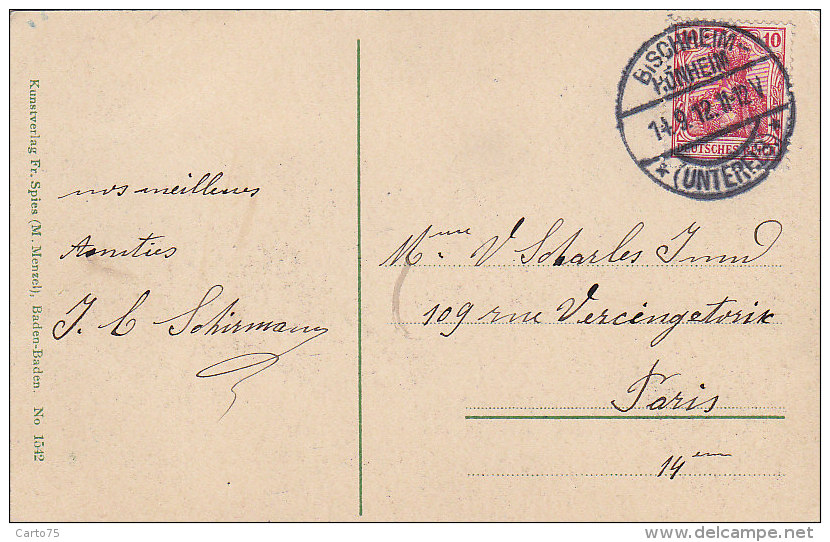 Kunstverlag Fr. Spies (M. Menzel), Baden-Baden. No 1542
nos meilleures
Amitiés
J. C Schirmann
BISCHHEIM-
HÖNHEIM
14.9.12.11-12V
* (UNTEREL *
10
DEUTSCHES REICH
Mme V Scharles
109 rue Vercingetorix
Paris
14em
Carto75
delcampe.net